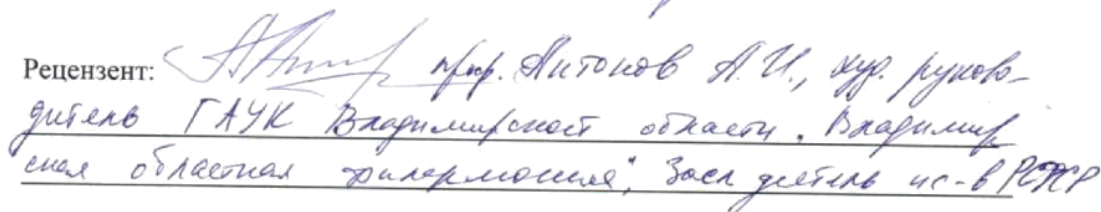 Рецензент: проф. Антонов А.И., худ. руково-
дитель ГАУК Владимирской области „Владимир
ская областная филармония", Засл деятель ис-в РСФСР